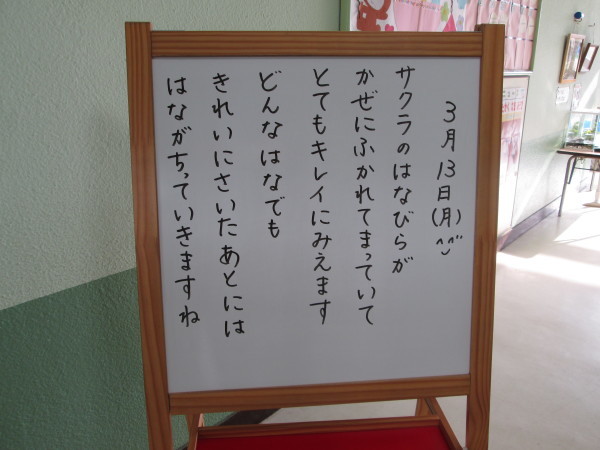 3月13日(月)^-^
サクラのはなびらが
かぜにふかれてまっていて
とてもキレイにみえます
どんなはなでも
きれいにさいたあとには
はながちっていきますね